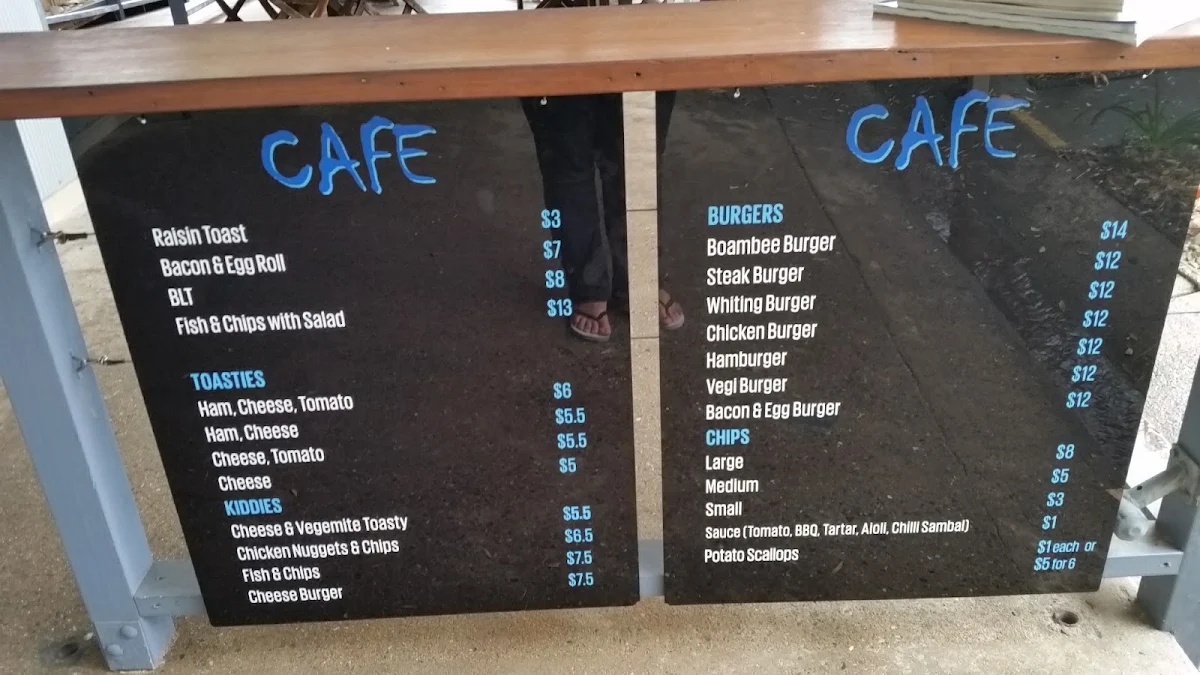 CAFE
Raisin Toast $3
Bacon & Egg Roll $7
BLT $8
Fish & Chips with Salad $13
TOASTIES
Ham, Cheese, Tomato $6
Ham, Cheese $5.5
Cheese, Tomato $5.5
Cheese $5
KIDDIES
Cheese & Vegemite Toasty $5.5
Chicken Nuggets & Chips $6.5
Fish & Chips $7.5
Cheese Burger $7.5
CAFE
BURGERS
Boambee Burger $14
Steak Burger $12
Whiting Burger $12
Chicken Burger $12
Hamburger $12
Vegi Burger $12
Bacon & Egg Burger $12
CHIPS
Large $8
Medium $5
Small $3
Sauce (Tomato, BBQ, Tartar, Aioli, Chilli Sambal) $1
Potato Scallops $1 each or
$5 for 6